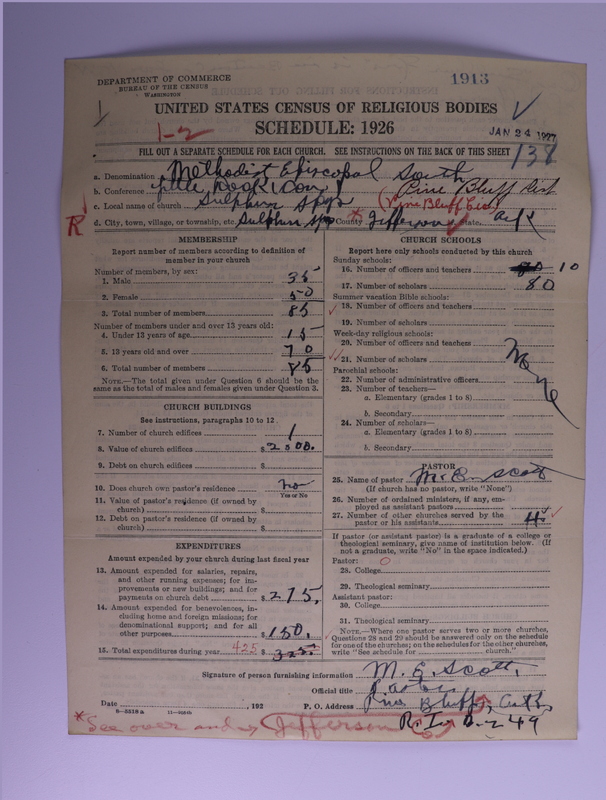 DEPARTMENT OF COMMERCE
BUREAU OF THE CENSUS
WASHINGTON
1913
UNITED STATES CENSUS OF RELIGIOUS BODIES
SCHEDULE: 1926
1-2
JAN 24 1927
FILL OUT A SEPARATE SCHEDULE FOR EACH CHURCH. SEE INSTRUCTIONS ON THE BACK OF THIS SHEET
138
a. Denomination Methodist Episcopal South
b. Conference Little Rock Pine Bluff Dist
c. Local name of church Sulphur Spgs (Pine Bluff
d. City, town, village, or township, etc. Sulphur Spgs * County Jefferson State Ark
R
MEMBERSHIP
Report number of members according to definition of
member in your church
Number of members, by sex:
1. Male 35
2. Female 50
3. Total number of members 85
Number of members under and over 13 years old:
4. Under 13 years of age 15
5. 13 years old and over 70
6. Total number of members 85
NOTE.—The total given under Question 6 should be
same as the total of males and females given under Question 3.
CHURCH BUILDINGS
See instructions, paragraphs 10 to 12
7. Number of church edifices 1
8. Value of church edifices $2500.
9. Debt on church edifices $
10. Does church own pastor's residence no
Yes or No
11. Value of pastor's residence (if owned by
church) $
12. Debt on pastor's residence (if owned by
church) $
EXPENDITURES
Amount expended by your church during last fiscal year
13. Amount expended for salaries, repairs,
and other running expenses; for im-
provements or new buildings; and for
payments on church debt $275.
14. Amount expended for benevolences, in-
cluding home and foreign missions; for
denominational support; and for all
other purposes $150.
15. Total expenditures during year 425 $325.
CHURCH SCHOOLS
Report here only schools conducted by this church
Sunday schools:
16. Number of officers and teachers 10
17. Number of scholars 80
Summer vacation Bible schools:
18. Number of officers and teachers
19. Number of scholars
Week-day religious schools:
20. Number of officers and teachers
21. Number of scholars
None
Parochial schools:
22. Number of administrative officers
23. Number of teachers—
a. Elementary (grades 1 to 8)
b. Secondary
24. Number of scholars—
a. Elementary (grades 1 to 8)
b. Secondary
PASTOR
25. Name of pastor M. E. Scott
(If church has no pastor, write "None")
26. Number of ordained ministers, if any, em-
ployed as assistant pastors
27. Number of other churches served by the
pastor or his assistants 4
If pastor (or assistant pastor) is a graduate of a college or
theological seminary, give name of institution below. (If
not a graduate, write "No" in the space indicated.)
Pastor: O
28. College
29. Theological seminary
Assistant pastor:
30. College
31. Theological seminary
NOTE.—Where one pastor serves two or more churches,
Questions 28 and 29 should be answered only on the schedule
for one of the churches; on the schedules for the other churches,
write "See schedule for church."
Signature of person furnishing information M. E. Scott,
Official title Pastor
Date , 192 P. O. Address Pine Bluff, Ark
8-5518a
* See over and Jefferson Co